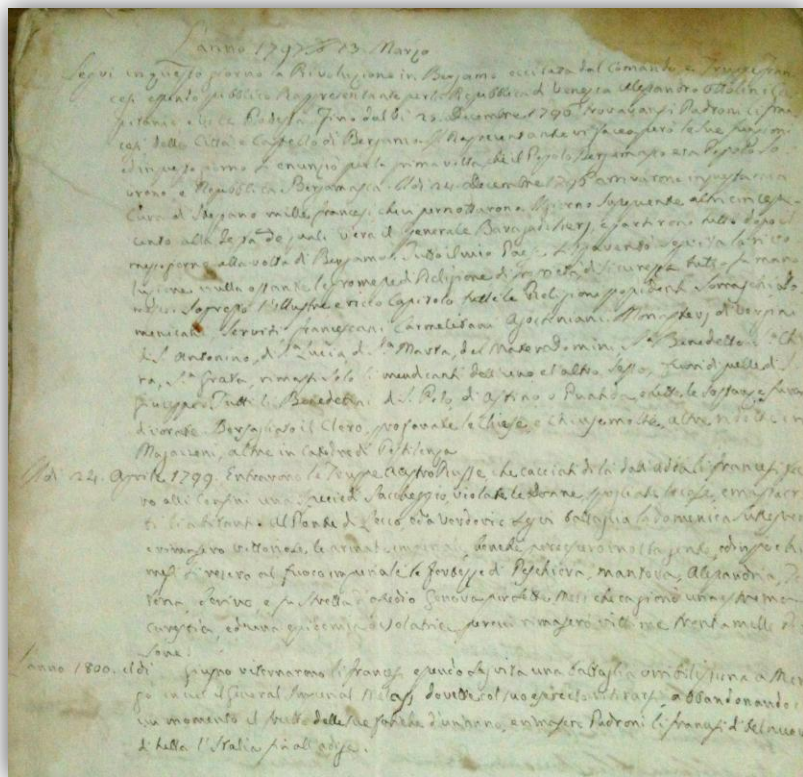 L'anno 1797 13. Marzo
Seguì in questo giorno la Rivoluzione in Bergamo eccitata dal Comando, e Truppe fran
cesi essendo pubblico Rappresentante per la Repubblica di Venezia Alesandro Ottolini Ca
pitanio Podestà. Fino dal dì 25. Decembre 1796 trovavansi Padroni li fran
cesi della Città e Castello di Bergamo. Il Rapresentante vi faceva però le sue funzioni
ed in questo giorno si enunziò per la prima volta, che il Popolo Bergamasco era Popolo So
vrano e Repubblica Bergamasca. Adì 24. Decembre 1796 arrivarono in questa
Cura di Stezano mille francesi che vi pernottarono. Il giorno susseguente altri cinquecento
alla testa de quali v'era il Generale Baraguai e partirono tutti dopo il
mezzogiorno alla volta di Bergamo. Tutto il mio Paese spavento
nulla ostante le promesse di Religione di proprietà di sicurezza tutto fu
Sopresso l'illustre e ricco Capitolo tutte le Religioni possidenti Somaschi Do
menicani. Serviti francescani Carmelitani Agostiniani. Monisteri di Vergini
di S. Antonino, di S.ta Lucia, di S.ta Marta, del Mater Domini, S.n Benedetto, S.ta Chia
ra, S.ta Grata, rimasti solo li mendicanti dell'uno e l'altro Sesso, fuori di quelle di S.
Giuseppe. Tutti li Benedetini di S. Polo d'Astino e Pontida, e tutte le sostanze furon
divorate. Bersagliato il Clero, profanate le Chiese, e chiuse molte, altre ridotte in
Magazeni, altre in Catedre di Pestilenza
Adì 24. Aprile 1799. Entrarono le Truppe Austro Russe, che cacciati di là dall'Adda li francesi
alli Confini una specie di Saccheggio, violate le donne, spogliate le case, e massacra
ti li abitanti. Al Ponte di Lecco, ed a Verderio seguì battaglia la domenica susseguen
e rimasero vittoriose le armate imperiali, benchè perdessero molta gente, ed in pochi
mesi si resero al fuoco imperiale le fortezze di Peschiera, Mantova, Alesandria, Tor
tona, Torino, e fu stretta d'assedio Genova per sette Mesi che cagionò una estrema
carestia, ed una epidemia desolatrice, per cui rimasero vittime trenta mille Per
sone.
L'anno 1800. adì giugno ritornarono li francesi essendo seguita una battaglia orribilissima a Maren
go in cui il General Imperial Melas dovette col suo esercito ritirarsi, abbandonando in
un momento il frutto delle sue fatiche d'un anno, e rimasero Padroni li francesi di bel nuovo
di tutta l'Italia fin all'Adige.